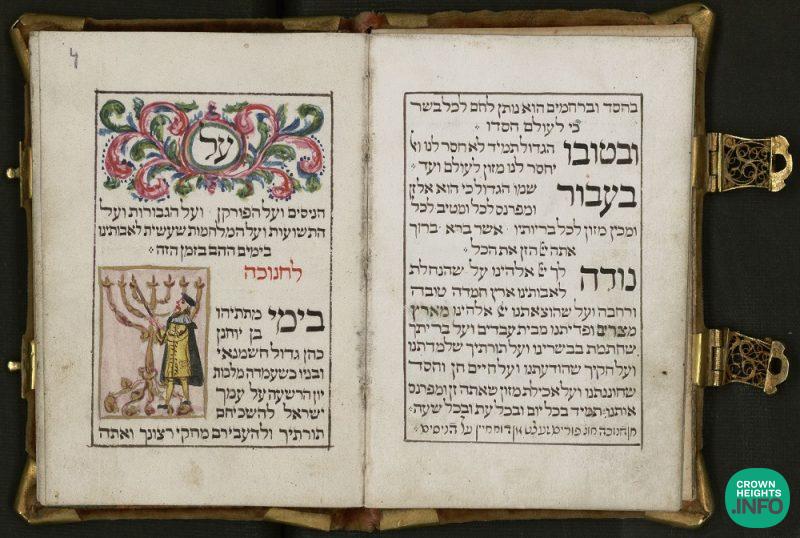 בחסד וברחמים הוא נותן לחם לכל בשר
כי לעולם חסדו
ובטובו הגדול תמיד לא חסר לנו
יחסר לנו מזון לעולם ועד
בעבור שמו הגדול כי הוא אל זן
ומפרנס לכל ומטיב לכל
ומכין מזון לכל בריותיו אשר ברא ברוך
אתה יי הזן את הכל
נודה לך יי אלהינו על שהנחלת
לאבותינו ארץ חמדה טובה
ורחבה ועל שהוצאתנו יי אלהינו מארץ
מצרים ופדיתנו מבית עבדים ועל בריתך
שחתמת בבשרינו ועל תורתיך שלמדתנו
ועל חקיך שהודעתנו ועל חיים חן וחסד
שחוננתנו ועל אכילת מזון שאתה זן ומפרנס
אותנו תמיד בכל יום ובכל עת ובכל שעה
חנוכה אונ פורים על הניסים
4
על
הניסים ועל הפורקן ועל הגבורות ועל
התשועות ועל המלחמות שעשית לאבותינו
בימים ההם בזמן הזה
לחנוכה
בימי מתתיהו
בן יוחנן
כהן גדול חשמנאי
ובניו כשעמדה מלכות
יון הרשעה על עמך
ישראל להשכיחם
תורתיך ולהעבירם מחקי רצונך ואתה
CROWN
HEIGHTS
.INFO